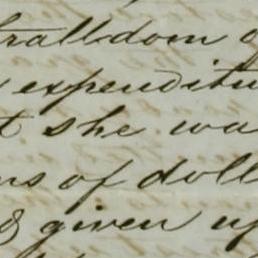 thralldom o
expenditu
t she wa
ns of doll
& given up